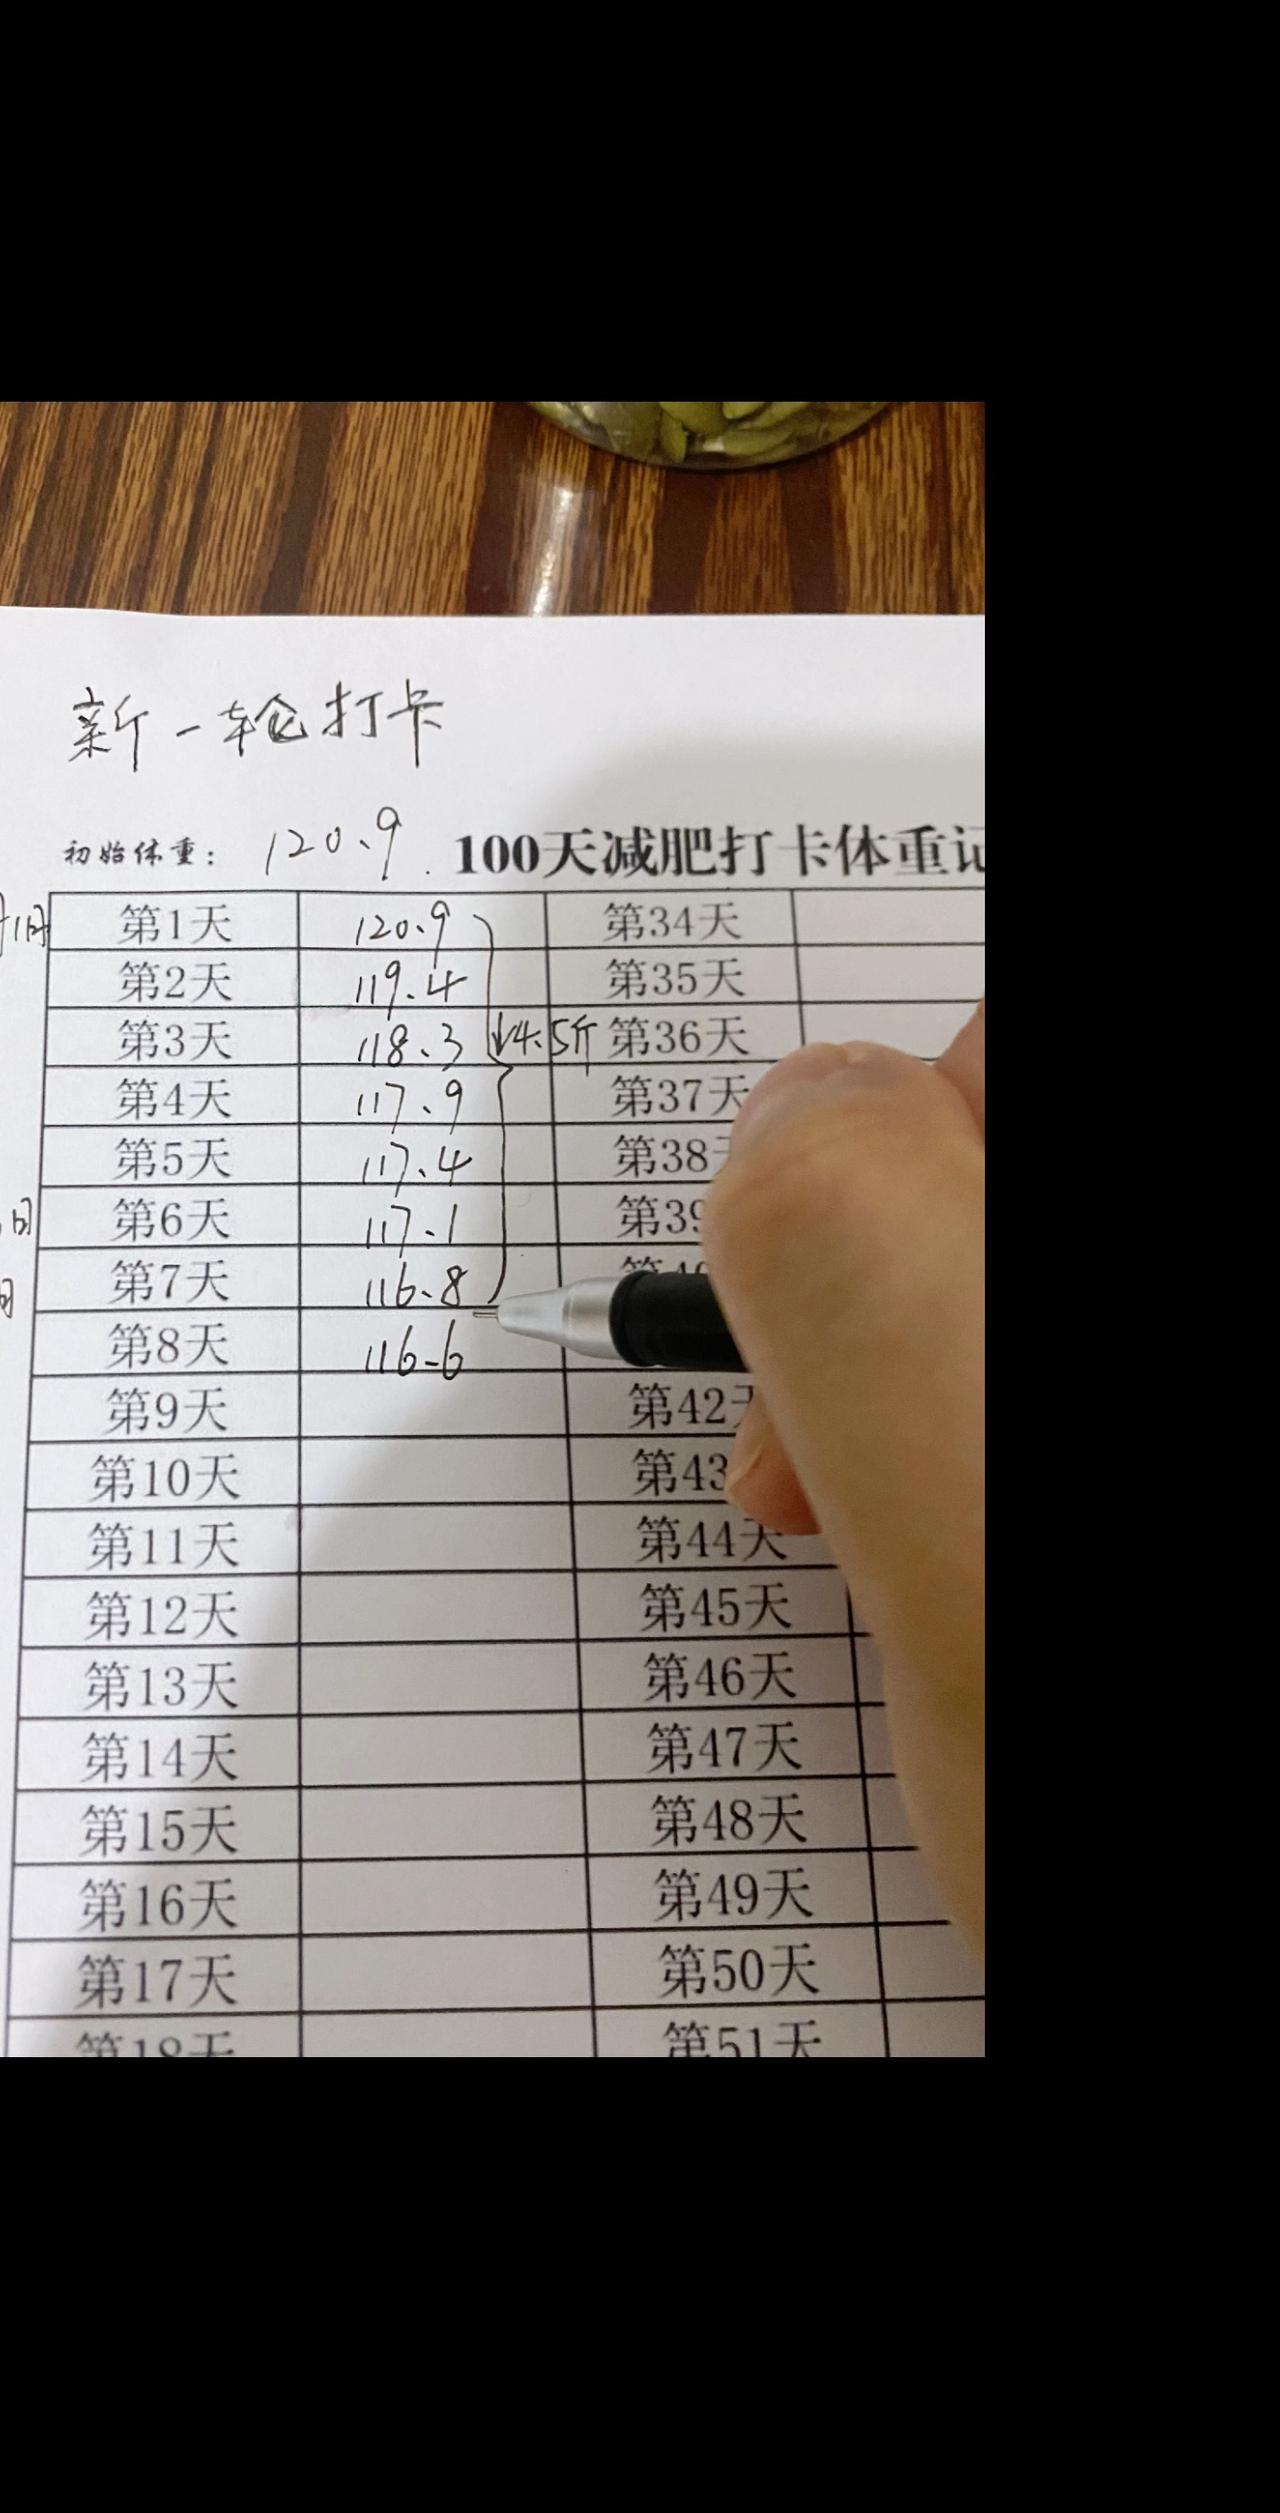 新一轮打卡
初始体重: 120.9. 100天减肥打卡体重记
1日 第1天 120.9 第34天
第2天 119.4 第35天
第3天 118.3 ↓4.5斤 第36天
第4天 117.9 第37天
第5天 117.4 第38
日 第6天 117.1 第39
第7天 116.8
第8天 116.6
第9天 第42
第10天 第43
第11天 第44天
第12天 第45天
第13天 第46天
第14天 第47天
第15天 第48天
第16天 第49天
第17天 第50天
第18天 第51天